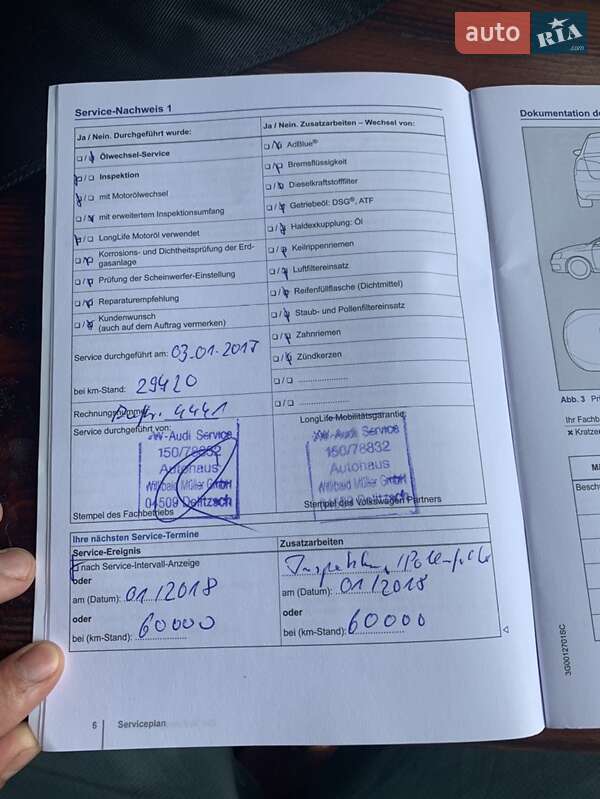 auto RIA .com
Service-Nachweis 1
Dokumentation de
Ja / Nein. Durchgeführt wurde:
Ja / Nein. Zusatzarbeiten – Wechsel von:
☐ / ☐ Ölwechsel-Service
☐ / ☐ Inspektion
☐ / ☐ mit Motorölwechsel
☐ / ☐ mit erweitertem Inspektionsumfang
☐ / ☐ LongLife Motoröl verwendet
☐ / ☐ Korrosions- und Dichtheitsprüfung der Erd-
gasanlage
☐ / ☐ Prüfung der Scheinwerfer-Einstellung
☐ / ☐ Reparaturempfehlung
☐ / ☐ Kundenwunsch
(auch auf dem Auftrag vermerken)
☐ / ☐ AdBlue®
☐ / ☐ Bremsflüssigkeit
☐ / ☐ Dieselkraftstofffilter
☐ / ☐ Getriebeöl: DSG®, ATF
☐ / ☐ Haldexkupplung: Öl
☐ / ☐ Keilrippenriemen
☐ / ☐ Luftfiltereinsatz
☐ / ☐ Reifenfüllflasche (Dichtmittel)
☐ / ☐ Staub- und Pollenfiltereinsatz
☐ / ☐ Zahnriemen
☐ / ☐ Zündkerzen
☐ / ☐ ........................
☐ / ☐ ........................
Service durchgeführt am: 03.01.2017
bei km-Stand: 29420
Rechnungsnummer 4441
Service durchgeführt von:
VW-Audi Service
150/78832
Autohaus
Willibald Müller GmbH
04509 Delitzsch
Stempel des Fachbetriebs
LongLife Mobilitätsgarantie
VW-Audi Service
150/78832
Autohaus
Willibald Müller GmbH
04509 Delitzsch
Stempel des Volkswagen Partners
Ihre nächsten Service-Termine
Service-Ereignis
nach Service-Intervall-Anzeige
oder
am (Datum): 01/2018
oder
bei (km-Stand): 60000
Zusatzarbeiten
Inspektion, Pollenfilter
am (Datum): 01/2018
oder
bei (km-Stand): 60000
6 Serviceplan
Abb. 3 Pri
Ihr Fachb
✖ Kratzer
Besch
3G0012701SC